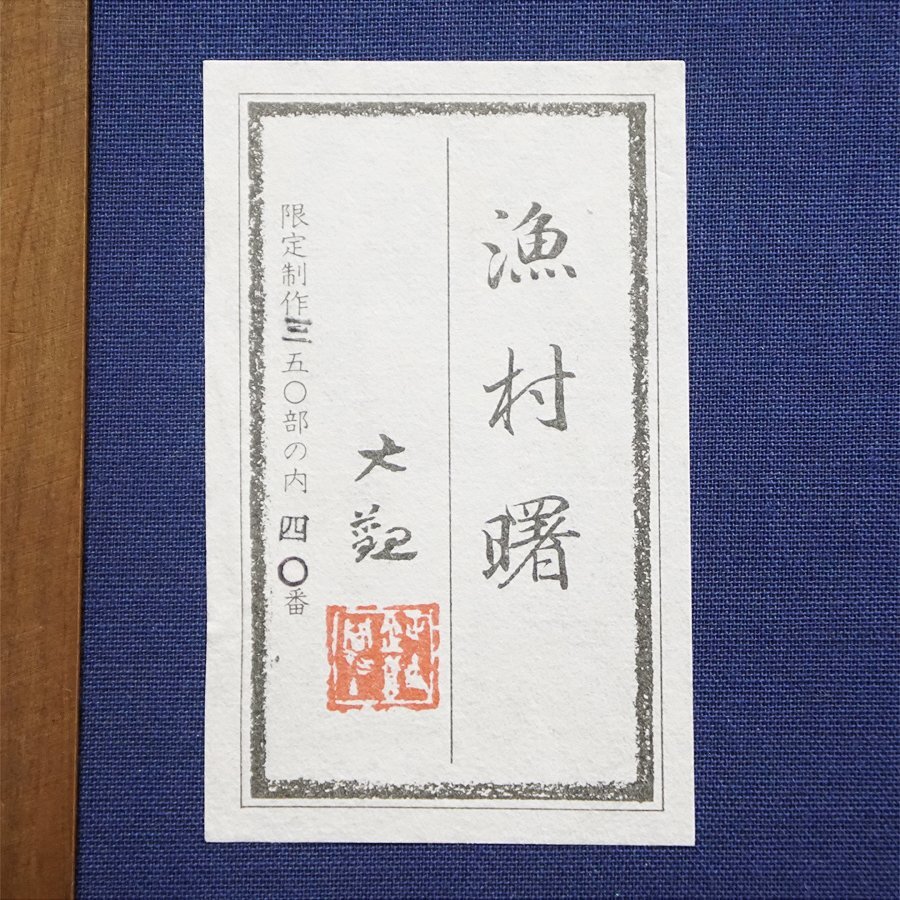 漁村曙
大観
限定制作三五〇部の内四〇番